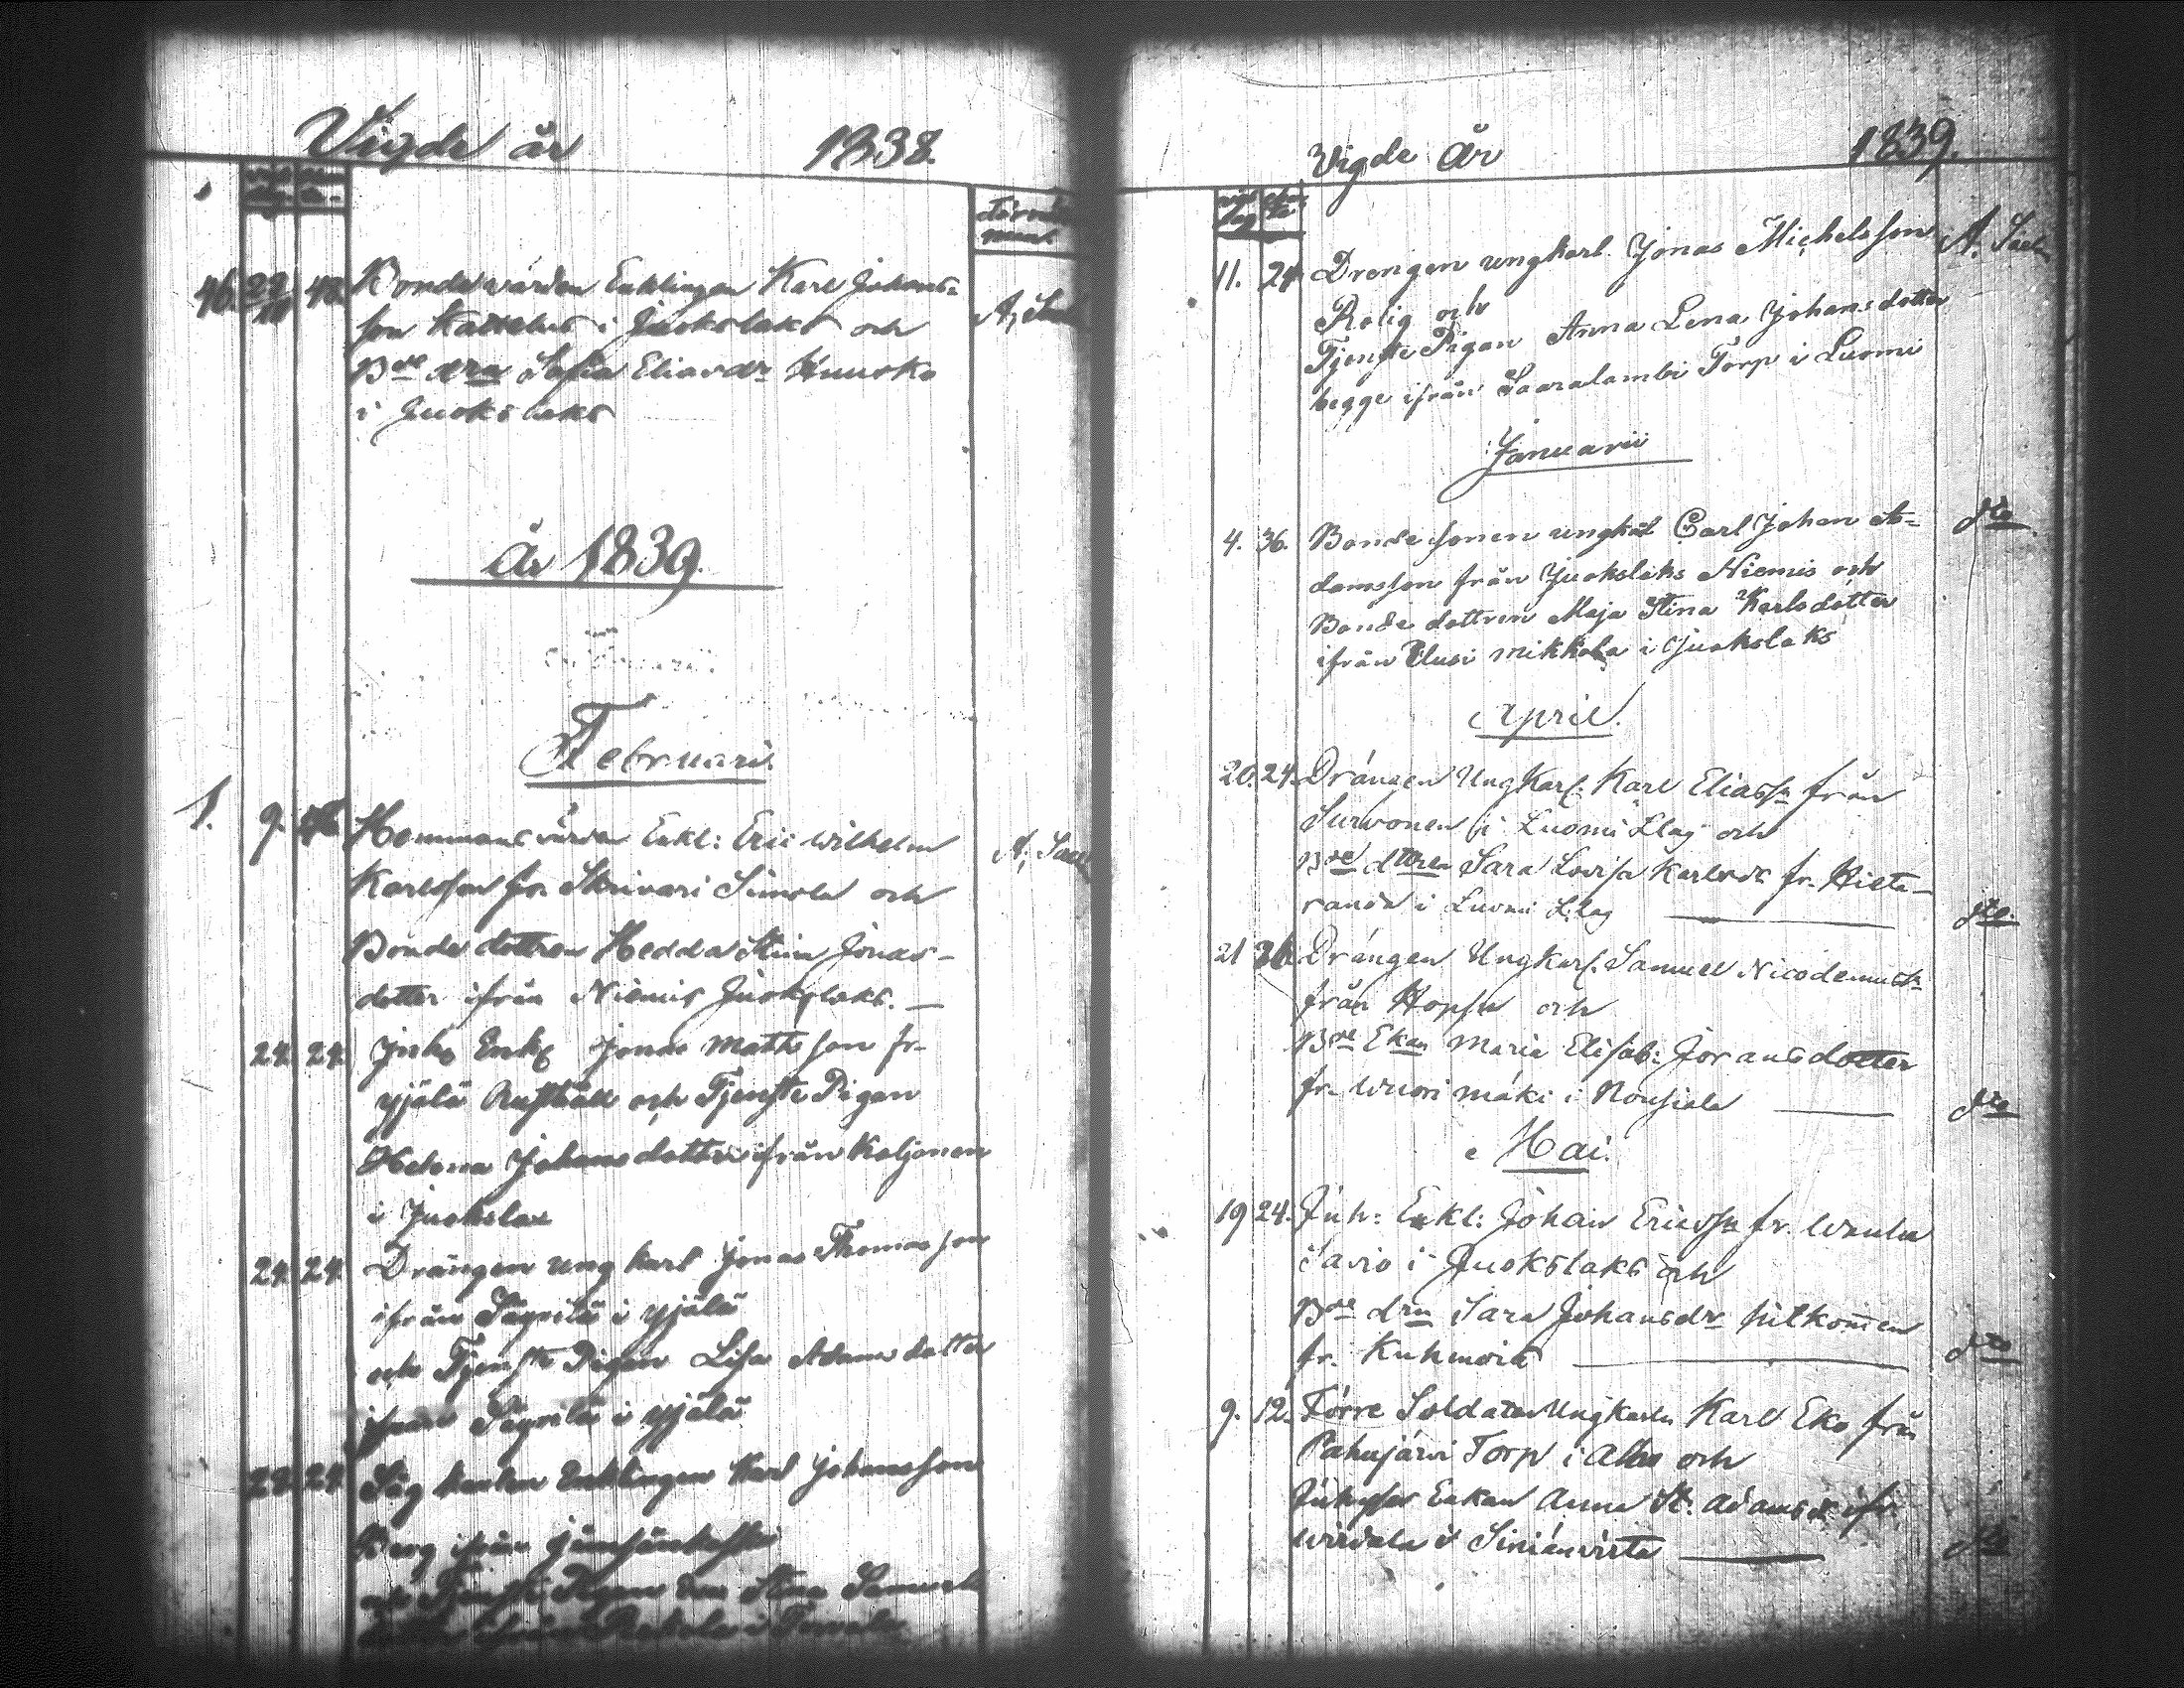 Vigde år 1838.
46. 22 48. Bondevärden Enklingen Karl Johans-
son Kattelus i Juokslaks och
Bde dra Sofia Eliasdr Huusko
i Juokslaks
År 1839.
Februari.
1. 9. Hemmansvärden Enkl: Eric Wilhelm A. Sael
Karlsson fr. Skrivari Simola och
Bonde dottren Hedda Stina Jonas-
dotter ifrån Niemis Juokslaks. —
24. 24. Inh: Enkl Jonas Mattsson fr.
Yjälä Rusthåll och Tjenste Pigan
Helena Johansdotter ifrån Koljonen
i Juokslax
24. 24. Drängen ungkarl Jonas Thomasson
ifrån Säyrilä i Yjälä
och Tjenste Pigan Lisa Adamsdotter
ifrån Säyrilä i Yjälä
24. Såg karlen Enklingen Karl Johansson
Berg ifrån Jämsänkoski
och Tjenste Pigan Stina Samuels
Vigde År 1839.
11. 24. Drengen ungkarl. Jonas Michelsson A. Sael
Rolig och
Tjenste Pigan Anna Lena Johansdotter
begge ifrån Saaralambi Torp i Luomi
Januarii
4. 36. Bondesonen ungkal Carl Johan A- dto
damsson från Juokslaks Niemis och
Bonde dottren Maja Stina Karlsdotter
ifrån Uusi mikkola i Juokslaks
April.
20. 24. Drängen Ungkarl: Karl Eliassn från
Survonen i Luomi Llag och
Bde dttren Sara Lovisa Karlsdr fr. Hieta-
randa i Luomi L:lag — dto.
21 26. Drängen Ungkarl. Samuel Nicodemussn
från Hopsu och
Bde Ekan Maria Elisab: Joransdotter
fr. Wuori mäki i Rousiala — dto
Mai.
19 24. Inh: Enkl: Johan Ericssn fr. Wanha
Savio i Juokslaks och
Bde drn Sara Johansdr hitkom̄en
fr. Kuhmois — dto
9. 12. Förre Soldaten Ungkarln Karl Eko från
Pahujärvi Torp i Alho och
Inhyses Enkan Anna St. Adamsdr ifr.
Wirdala i Siniänvirta — dto